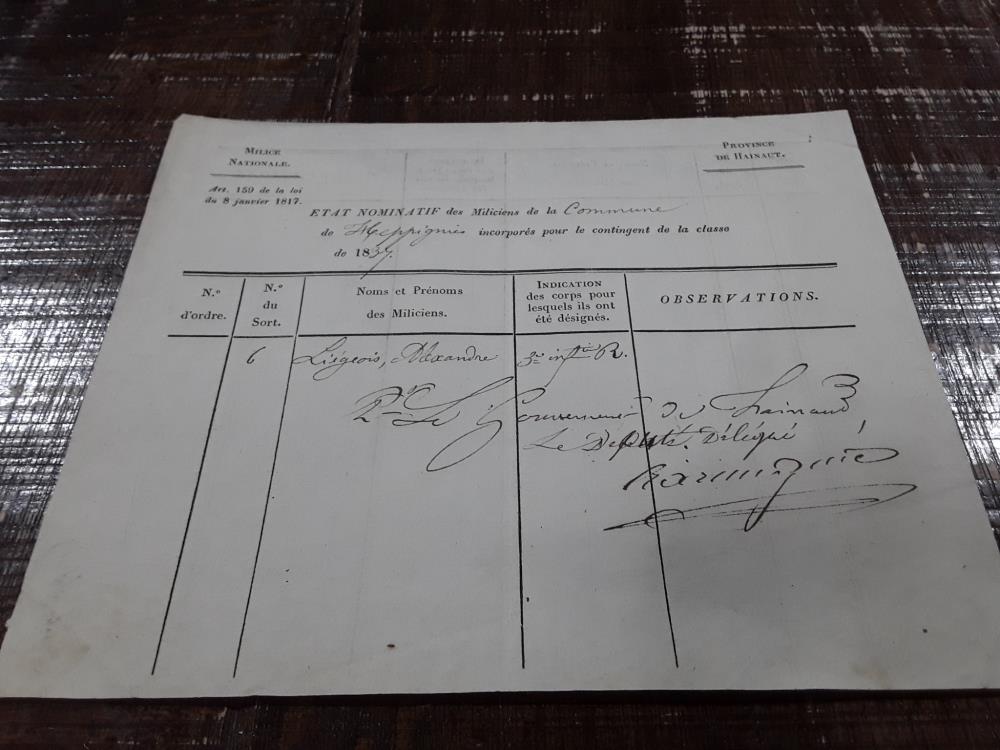 MILICE
NATIONALE.
PROVINCE
DE HAINAUT.
Art. 159 de la loi
du 8 janvier 1817.
ETAT NOMINATIF des Miliciens de la Commune
de Heppignies incorporés pour le contingent de la classe
de 1837.
N.º
d'ordre.
N.º
du
Sort.
Noms et Prénoms
des Miliciens.
INDICATION
des corps pour
lesquels ils ont
été désignés.
OBSERVATIONS.
6 Liégeois, Alexandre
Le Gouverneur du Hainaut
Le Député Délégué